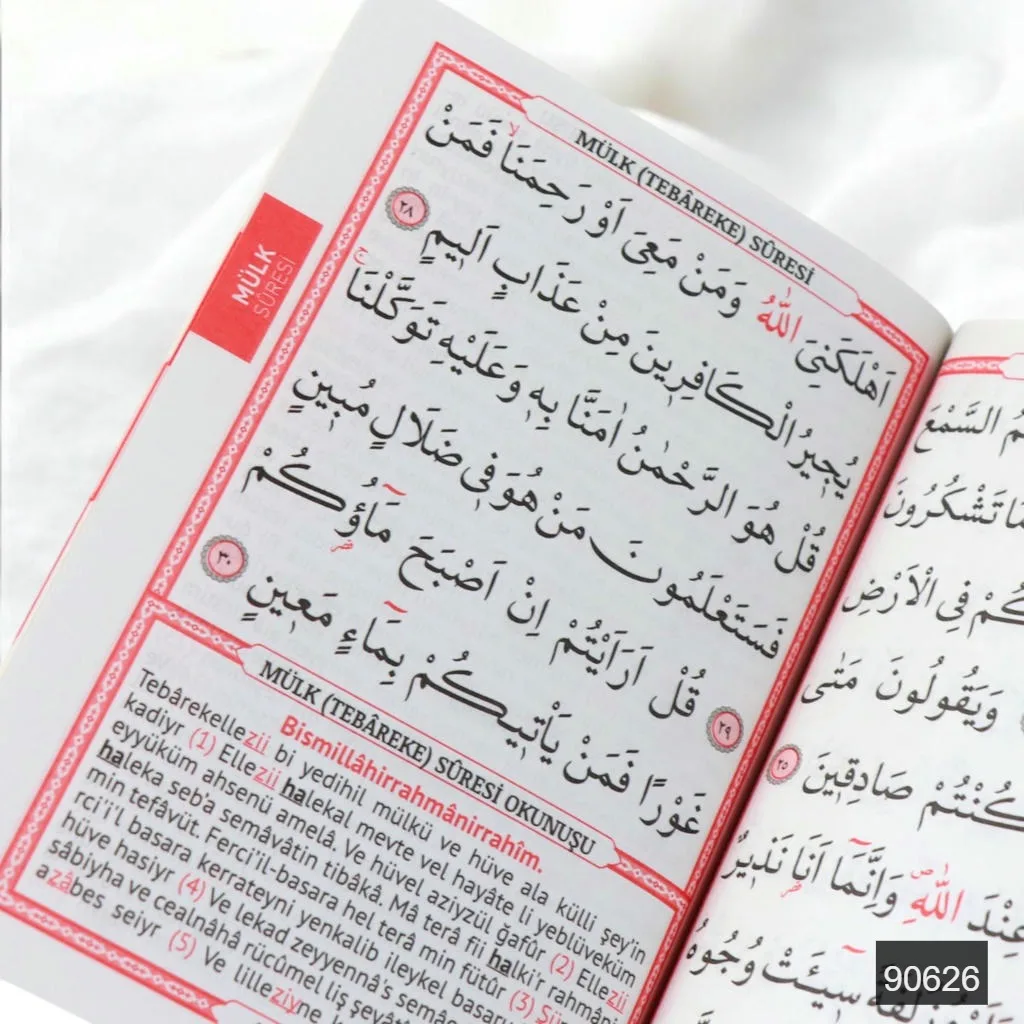 MÜLK
SÛRESİ
MÜLK (TEBÂREKE) SÛRESİ
اَهْلَكَنِىَ اللّٰهُ وَمَنْ مَعِىَ اَوْ رَحِمَنَاۙ فَمَنْ
يُجٖيرُ الْكَافِرٖينَ مِنْ عَذَابٍ اَلٖيمٍ ﴿٢٨﴾
قُلْ هُوَ الرَّحْمٰنُ اٰمَنَّا بِهٖ وَعَلَيْهِ تَوَكَّلْنَاۚ
فَسَتَعْلَمُونَ مَنْ هُوَ فٖى ضَلَالٍ مُبٖينٍ
﴿٢٩﴾ قُلْ اَرَاَيْتُمْ اِنْ اَصْبَحَ مَٓاؤُكُمْ
غَوْرًا فَمَنْ يَاْتٖيكُمْ بِمَٓاءٍ مَعٖينٍ ﴿٣٠﴾
MÜLK (TEBÂREKE) SÛRESİ OKUNUŞU
Bismillâhirrahmânirrahîm.
Tebârekellezii bi yedihil mülkü ve hüve ala külli şey'in
kadiyr (1) Ellezii halekal mevte vel hayâte li yeblüveküm
eyyüküm ahsenü amelâ. Ve hüvel aziyzül ğafûr (2) Ellezii
haleka seb'a semâvâtin tibâkâ. Mâ terâ fii halki'r rahmâni
min tefâvüt. Ferci'il-basara hel terâ min fütûr (3) Sü
rci'i'l basara kerrateyni yenkalib ileykel basaru
hüve hasiyr (4) Ve lekad zeyyennâ's semâe
sâbiyha ve cealnâhâ rücûmel liş şeyâtî
azâbes seiyr (5) Ve lilleziyne
مُ السَّمْعَ
مَا تَشْكُرُونَ
كُمْ فِى الْاَرْضِ
وَيَقُولُونَ مَتٰى
كُنْتُمْ صَادِقٖينَ ﴿٢٥﴾
عِنْدَ اللّٰهِ وَاِنَّمَٓا اَنَا نَذٖيرٌ
سٖيٓـَٔتْ وُجُوهُ
90626